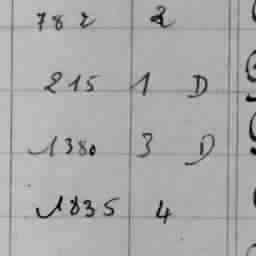 782 2
215 1 D
1380 3 D
1835 4